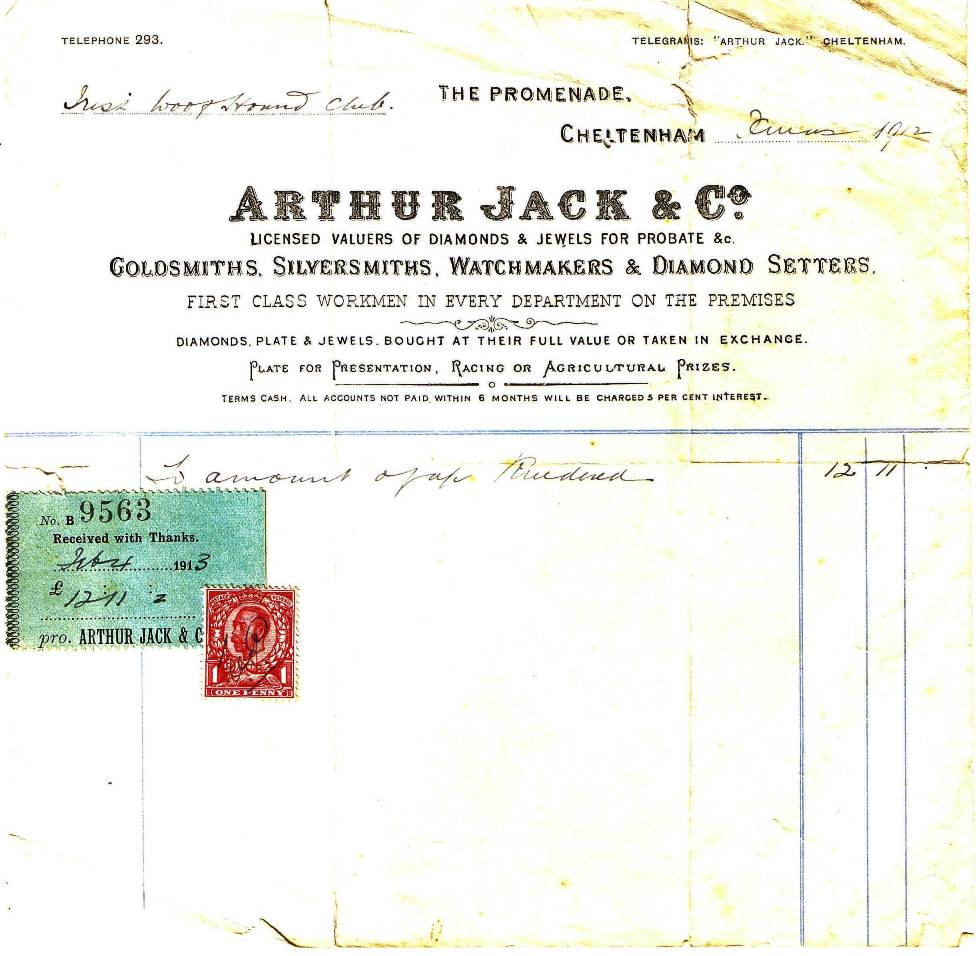 TELEPHONE 293.
TELEGRAMS: "ARTHUR JACK." CHELTENHAM.
Irish Woof Hound Club.
THE PROMENADE,
CHELTENHAM Xmas 1912
ARTHUR JACK & Co.
LICENSED VALUERS OF DIAMONDS & JEWELS FOR PROBATE &c.
GOLDSMITHS, SILVERSMITHS, WATCHMAKERS & DIAMOND SETTERS,
FIRST CLASS WORKMEN IN EVERY DEPARTMENT ON THE PREMISES
DIAMONDS, PLATE & JEWELS. BOUGHT AT THEIR FULL VALUE OR TAKEN IN EXCHANGE.
PLATE FOR PRESENTATION, RACING OR AGRICULTURAL PRIZES.
TERMS CASH. ALL ACCOUNTS NOT PAID WITHIN 6 MONTHS WILL BE CHARGED 5 PER CENT INTEREST.
To amount of a/c Rendered 12 11
No. B 9563
Received with Thanks.
Feb 4 1913
£ 12 11
pro. ARTHUR JACK & C
POSTAGE REVENUE
1 1
ONE PENNY